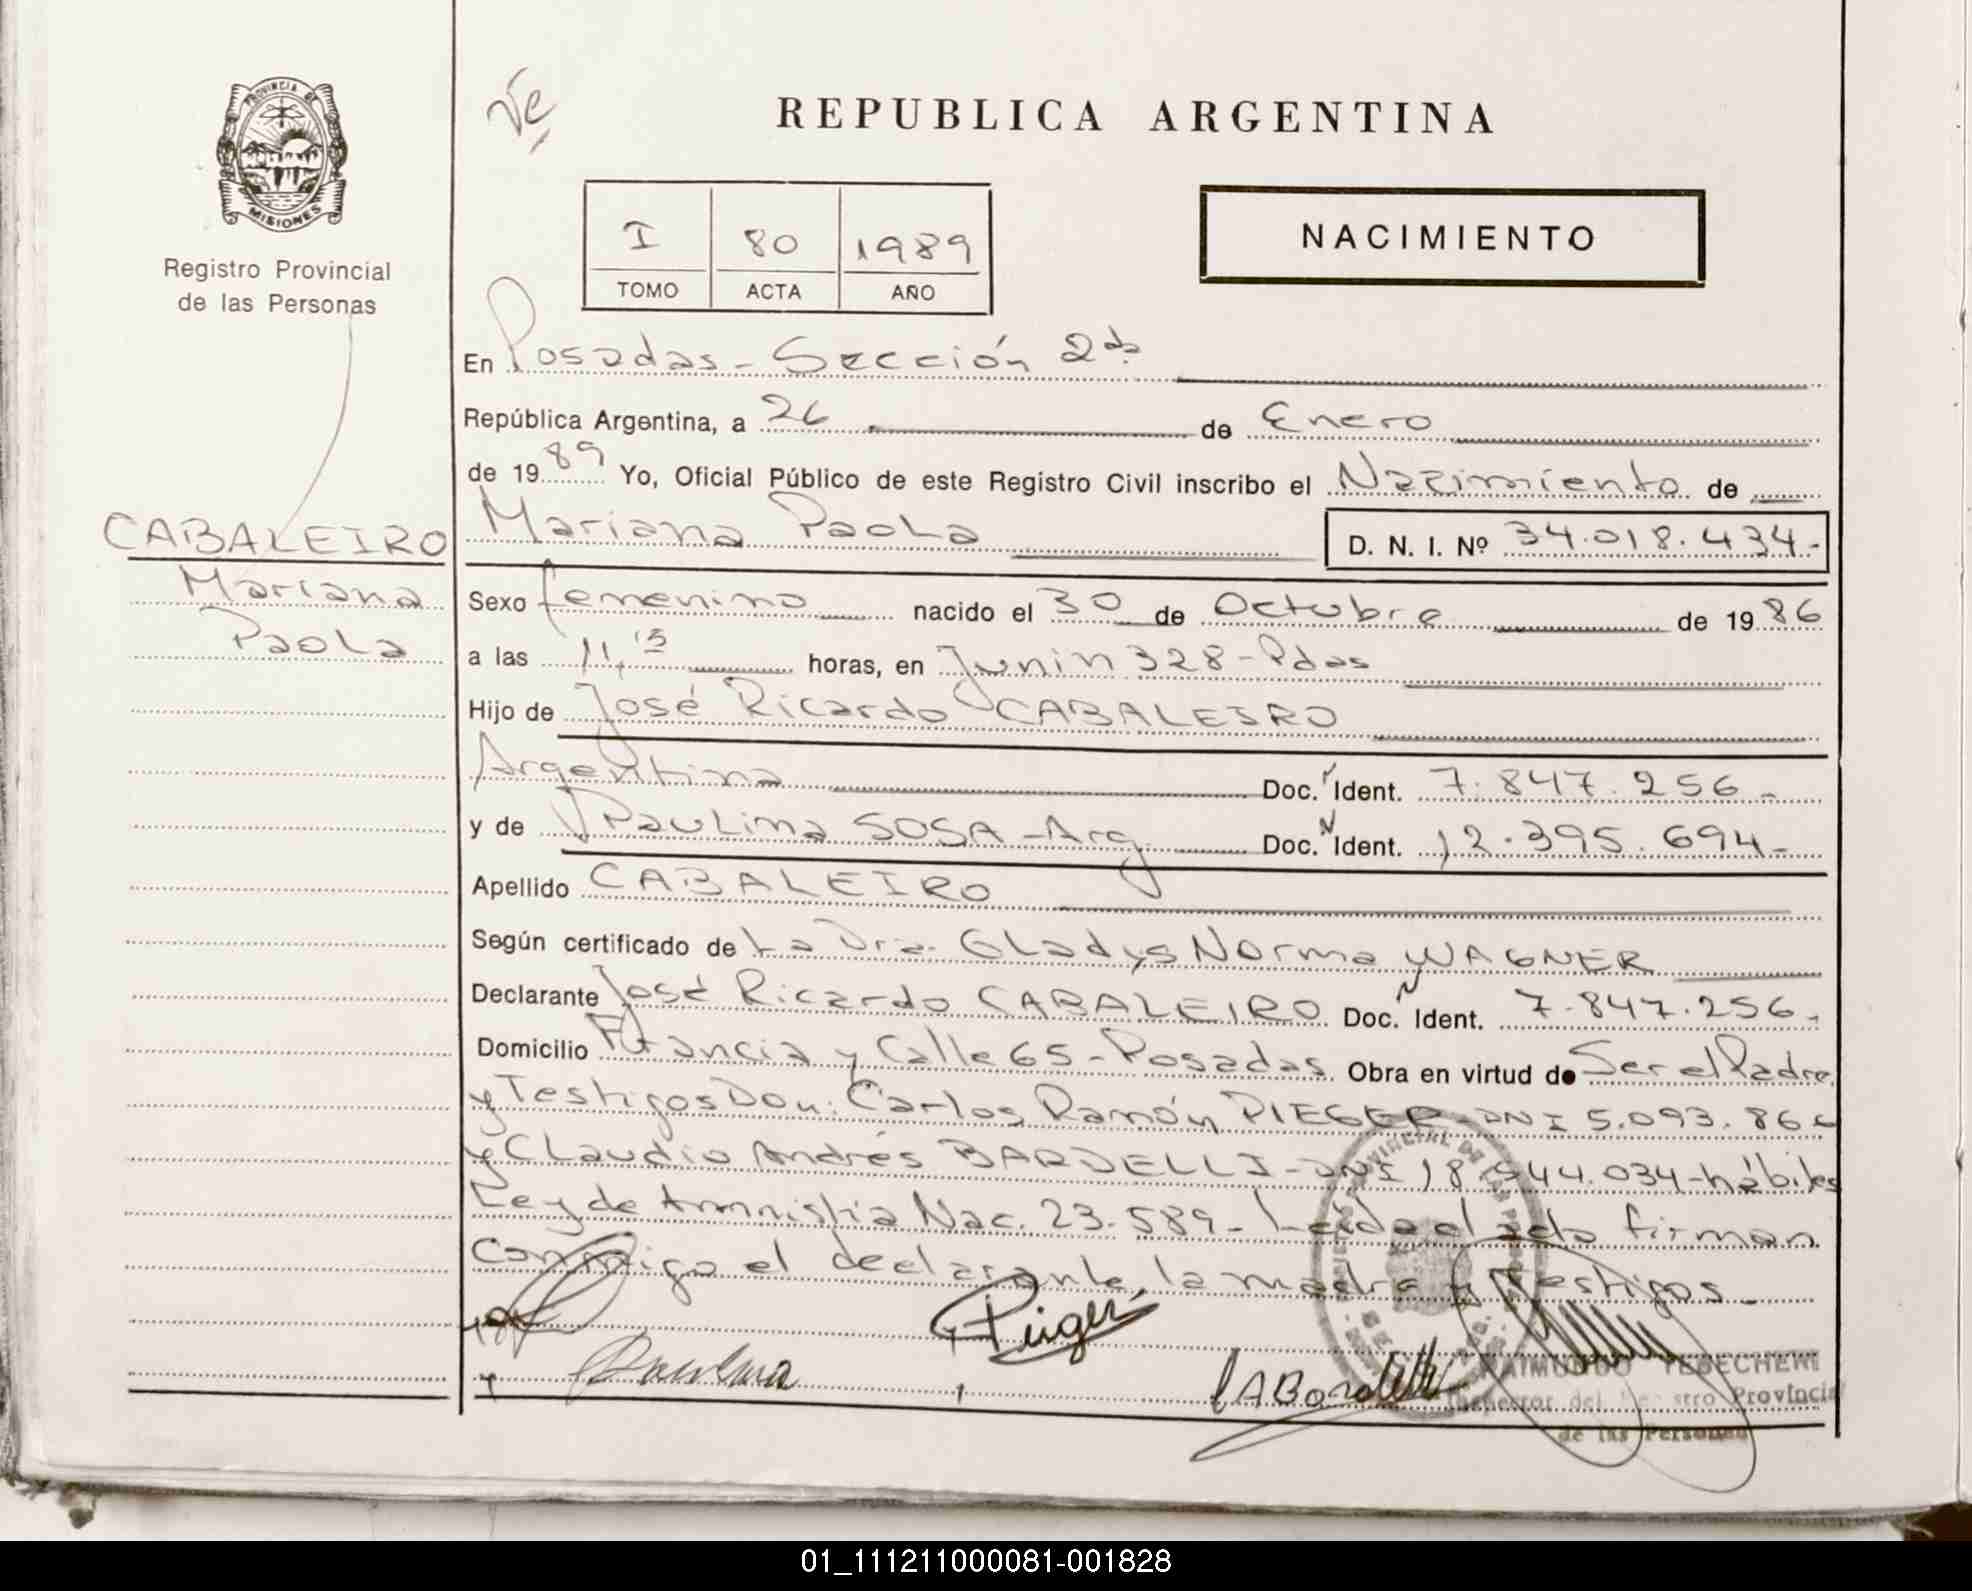 PROVINCIA DE
MISIONES
Registro Provincial
de las Personas
REPUBLICA ARGENTINA
I 80 1989
TOMO ACTA AÑO
NACIMIENTO
En Posadas - Sección 2da
República Argentina, a 26 de Enero
de 1989 Yo, Oficial Público de este Registro Civil inscribo el Nacimiento de
CABALEIRO
Mariana
Paola
Mariana Paola D. N. I. Nº 34.018.434-
Sexo femenino nacido el 30 de Octubre de 1986
a las 11,15 horas, en Junin 328 - Pdas
Hijo de José Ricardo CABALEIRO
Argentina Doc. Ident. 7.847.256-
y de Paulina SOSA - Arg Doc. Ident. 12.395.694-
Apellido CABALEIRO
Según certificado de La Dra. Gladys Norma WAGNER
Declarante José Ricardo CABALEIRO Doc. Ident. 7.847.256-
Domicilio Francia y Calle 65 - Posadas Obra en virtud de Ser el Padre
y Testigos Don: Carlos Ramón PIEGER - DNI 5.093.86
y Claudio Andrés BARDELLI - DNI 18.944.034 - hábiles
Ley de Amnistia Nac. 23.589 - Leida el acta firman
Conmigo el declarante, la madre y testigos -
Pieger
Paulina
RAIMUNDO YEDECHEWI
Inspector del Registro Provincial
de las Personas
01_111211000081-001828